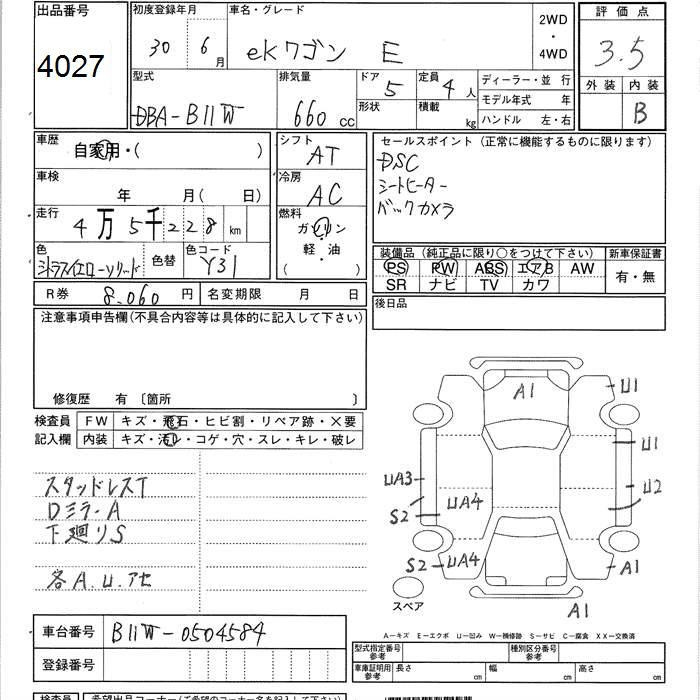 出品番号 初度登録年月 車名・グレード 2WD 評価点
4027 30 6月 eKワゴン E ・ 4WD 3.5
型式 排気量 ドア 定員 ディーラー・並行 外装 内装
DBA-B11W 660cc 5 4人 モデル年式 年 B
形状 積載 kg ハンドル 左・右
車歴 自家用・( ) シフト AT セールスポイント(正常に機能するものに限ります)
車検 年 月( 日) 冷房 AC DSC
シートヒーター
バックカメラ
走行 4万5千228km 燃料 ガソリン
軽・油
( ・ )
色 シトラスイエローソリッド 色替 色コード Y31
装備品(純正品に限り○をつけて下さい) 新車保証書
PS PW ABS エアB AW 有・無
SR ナビ TV カワ
R券 8.060円 名変期限 月 日 後日品
注意事項申告欄(不具合内容等は具体的に記入して下さい)
修復歴 有〔箇所 〕
検査員 FW キズ・飛石・ヒビ割・リペア跡・×要
記入欄 内装 キズ・汚レ・コゲ・穴・スレ・キレ・破レ
スタッドレスT
Dミラ-A
下廻りS
各A.U.アセ
A1 U1
U1
UA3 U2
S2 UA4
S2 UA4 A1
スペア A1
車台番号 B11W-0504584
登録番号
A-キズ E-エクボ U-凹み W-補修跡 S-サビ C-腐食 XX-交換済
型式指定番号 参考 種別区分番号 参考
車庫証明用 参考 長さ cm 幅 cm 高さ cm